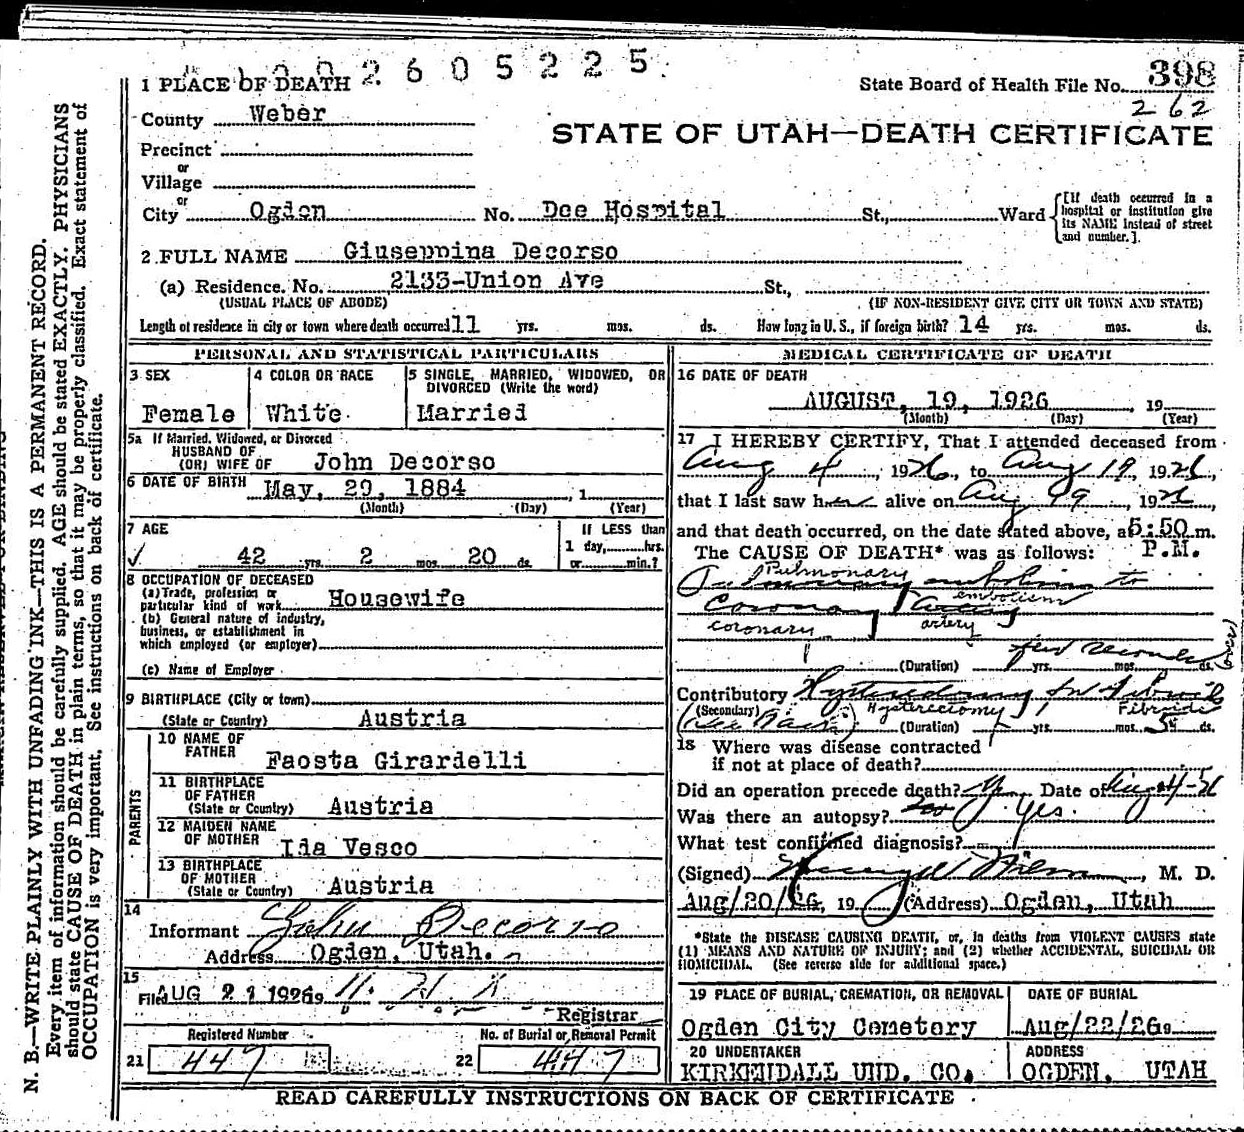 2605225
1 PLACE OF DEATH
State Board of Health File No. 398
262
County Weber
STATE OF UTAH—DEATH CERTIFICATE
Precinct
or
Village
or
City Ogden No. Dee Hospital St., Ward
[If death occurred in a hospital or institution give its NAME instead of street and number.].
2 FULL NAME Giuseppina Decorso
(a) Residence. No. 2133-Union Ave St.,
(USUAL PLACE OF ABODE) (IF NON-RESIDENT GIVE CITY OR TOWN AND STATE)
Length of residence in city or town where death occurred 11 yrs. mos. ds. How long in U. S., if foreign birth? 14 yrs. mos. ds.
PERSONAL AND STATISTICAL PARTICULARS
3 SEX
Female
4 COLOR OR RACE
White
5 SINGLE, MARRIED, WIDOWED, OR
DIVORCED (Write the word)
Married
5a If Married, Widowed, or Divorced
HUSBAND OF
(OR) WIFE OF John Decorso
6 DATE OF BIRTH May, 29, 1884 , 1
(Month) (Day) (Year)
7 AGE
42 yrs. 2 mos. 20 ds.
If LESS than
1 day, hrs.
or min.?
8 OCCUPATION OF DECEASED
(a) Trade, profession or
particular kind of work Housewife
(b) General nature of industry,
business, or establishment in
which employed (or employer)
(c) Name of Employer
9 BIRTHPLACE (City or town)
(State or Country) Austria
PARENTS
10 NAME OF
FATHER Faosta Girardelli
11 BIRTHPLACE
OF FATHER
(State or Country) Austria
12 MAIDEN NAME
OF MOTHER Ida Vesco
13 BIRTHPLACE
OF MOTHER
(State or Country) Austria
14
Informant John Decorso
Address Ogden, Utah.
15
Filed AUG 21 1926 19
Registrar
Registered Number
21 447
No. of Burial or Removal Permit
22 447
MEDICAL CERTIFICATE OF DEATH
16 DATE OF DEATH
AUGUST, 19, 1926 , 19
(Month) (Day) (Year)
17 I HEREBY CERTIFY, That I attended deceased from
Aug 4 , 1926, to Aug 19, 1926,
that I last saw her alive on Aug 19 , 1926,
and that death occurred, on the date stated above, at 5:50 m.
The CAUSE OF DEATH* was as follows: P.M.
Pulmonary
Pulmonary embolism to
embolism
Coronary Artery
coronary artery
few seconds (over)
(Duration) yrs. mos. ds.
Contributory Hysterectomy for Fibroids
(Secondary) (See Back) Hysterectomy Fibroids
(Duration) yrs. mos. ds.
18 Where was disease contracted
if not at place of death?
Did an operation precede death? Yes Date of Aug 4-26
Was there an autopsy? Yes.
What test confirmed diagnosis?
(Signed) , M. D.
Aug/20/26, 19 (Address) Ogden, Utah
*State the DISEASE CAUSING DEATH, or, in deaths from VIOLENT CAUSES state
(1) MEANS AND NATURE OF INJURY; and (2) whether ACCIDENTAL, SUICIDAL OR
HOMICIDAL. (See reverse side for additional space.)
19 PLACE OF BURIAL, CREMATION, OR REMOVAL
Ogden City Cemetery
DATE OF BURIAL
Aug/22/26
20 UNDERTAKER
KIRKENDALL UND. CO.
ADDRESS
OGDEN, UTAH
READ CAREFULLY INSTRUCTIONS ON BACK OF CERTIFICATE
N. B.—WRITE PLAINLY WITH UNFADING INK—THIS IS A PERMANENT RECORD.
Every item of information should be carefully supplied. AGE should be stated EXACTLY. PHYSICIANS
should state CAUSE OF DEATH in plain terms, so that it may be properly classified. Exact statement of
OCCUPATION is very important. See instructions on back of certificate.